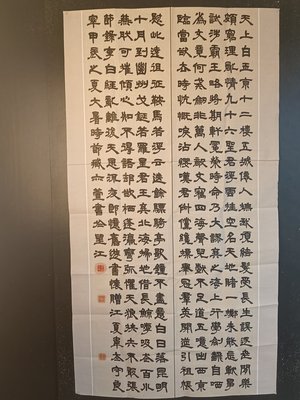 天上白玉京十二樓五城僊人撫我頂結髮受長生誤逐世間樂
頗窮理亂情九十六聖君浮雲挂空名天地賭一擲未能忘戰爭
試涉霸王略將期軒冕榮時命乃大謬棄之海上行學劍翻自哂
為文竟何成劍非萬人敵文竊四海聲兒戲不足道五噫出西京
臨當欲去時慷慨淚沾纓嘆君倜儻才標舉冠羣英開筵引祖帳
慰此遠徂征鞍馬若浮雲送余驃騎亭歌鐘不盡意白日落昆明
十月到幽州戈鋋若羅星君王棄北海掃地借長鯨呼吸走百川
燕然可摧傾心知不得語卻欲棲蓬瀛彎弧懼天狼挾矢不敢張
節錄李白經亂離後天恩流夜郎憶舊遊書懷贈江夏韋太守良
宰甲辰之夏大暑時節萱書於望江